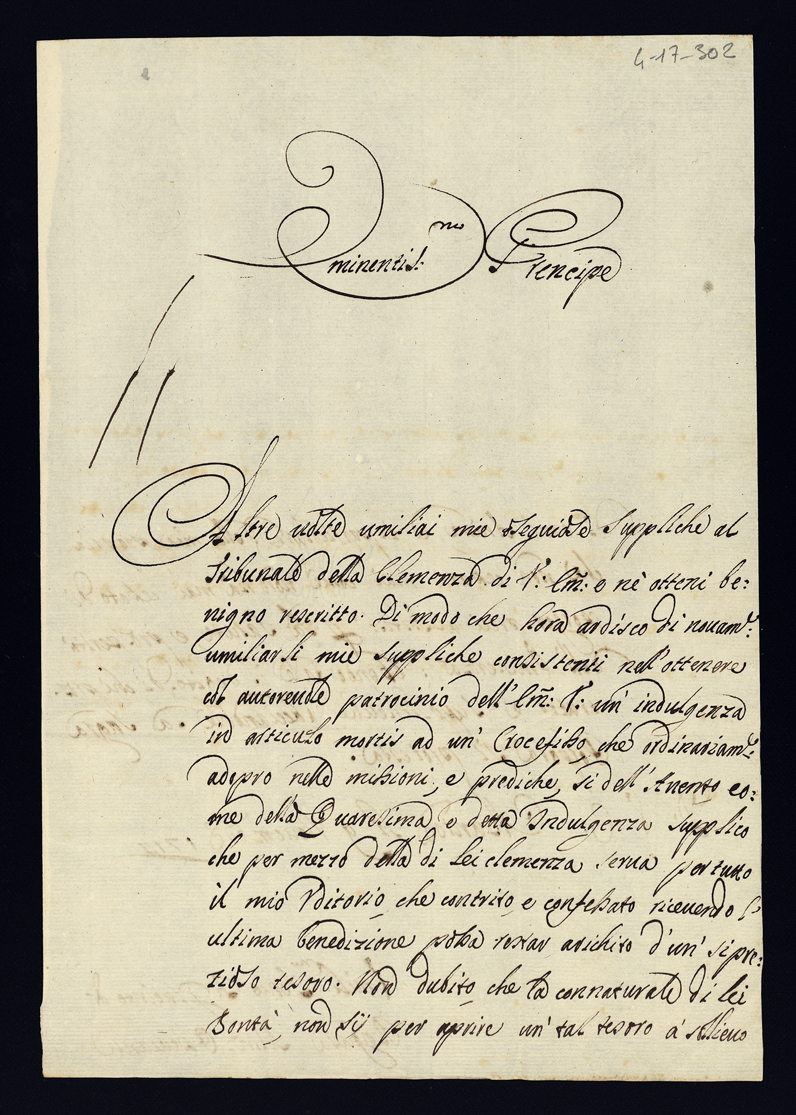 4-17-302
Eminentis.mo Prencipe
Altre uolte umiliai mie osequiose suppliche al
tribunale della Clemenza di V: Em: e nè otteni be:
nigno rescritto. Di modo che hora ardisco di nouam.te:
umiliarli mie suppliche consistenti nell'ottenere
col autoreuole patrocinio dell'Em: V: un'indulgenza
in articulo mortis ad un' Crocefisso che ordinariam.te
adopro nelle missioni, e prediche, si dell'Auento co:
me della Quaresima e detta Indulgenza supplico
che per mezzo della di Lei clemenza serua per tutto
il mio Vditorio, che contrito, e confessato riceuendo l'
ultima benedizione possa restar arichito d'un' si pre:
zioso tesoro. Non dubito che la connaturale di Lei
Bontà, non sij per aprire un'tal tesoro à solieuo